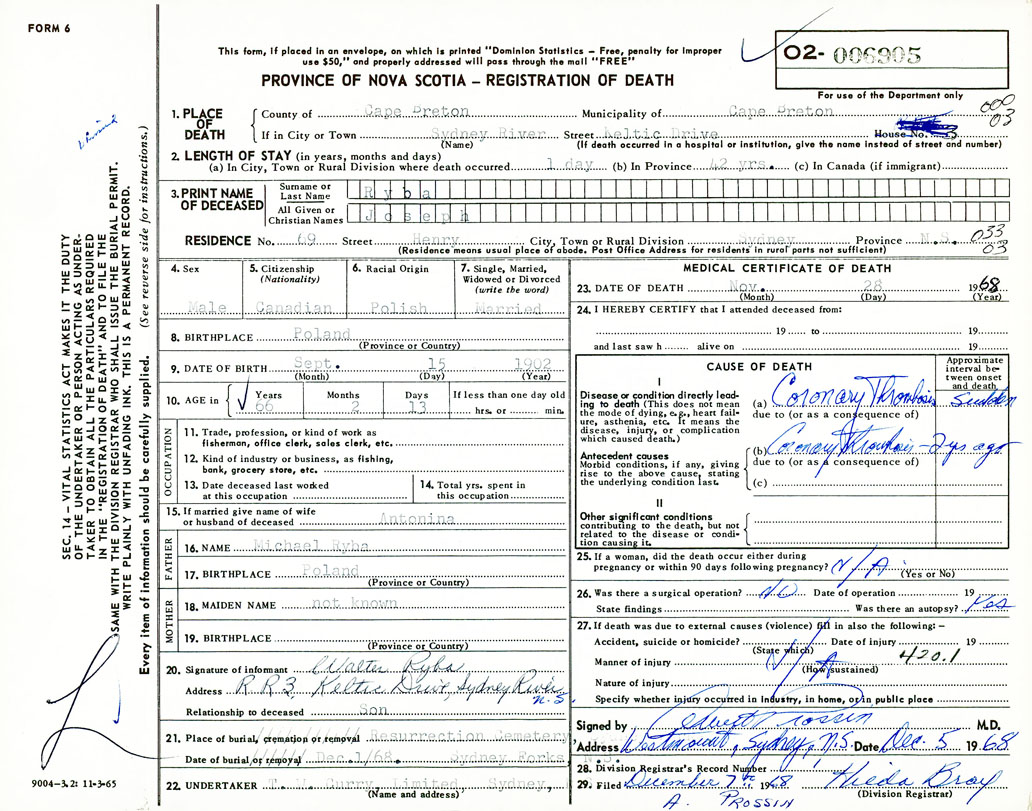 FORM 6
This form, if placed in an envelope, on which is printed "Dominion Statistics – Free, penalty for improper
use $50," and properly addressed will pass through the mail "FREE"
PROVINCE OF NOVA SCOTIA – REGISTRATION OF DEATH
02- 006905
For use of the Department only
000
03
1. PLACE OF DEATH
County of Cape Breton Municipality of Cape Breton
If in City or Town Sydney River Street Keltic Drive House No.
(Name) (If death occurred in a hospital or institution, give the name instead of street and number)
2. LENGTH OF STAY (in years, months and days)
(a) In City, Town or Rural Division where death occurred 1 day (b) In Province 42 yrs. (c) In Canada (if immigrant)
3. PRINT NAME OF DECEASED
Surname or Last Name Ryba
All Given or Christian Names Joseph
RESIDENCE No. 69 Street Henry City, Town or Rural Division Sydney Province N.S. 033
03
(Residence means usual place of abode. Post Office Address for residents in rural parts not sufficient)
4. Sex Male
5. Citizenship (Nationality) Canadian
6. Racial Origin Polish
7. Single, Married, Widowed or Divorced (write the word) Married
8. BIRTHPLACE Poland
(Province or Country)
9. DATE OF BIRTH Sept. 15 1902
(Month) (Day) (Year)
10. AGE in Years Months Days If less than one day old
66 2 13 hrs. or min.
OCCUPATION
11. Trade, profession, or kind of work as
fisherman, office clerk, sales clerk, etc.
12. Kind of industry or business, as fishing,
bank, grocery store, etc.
13. Date deceased last worked
at this occupation
14. Total yrs. spent in
this occupation
15. If married give name of wife
or husband of deceased Antonina
FATHER
16. NAME Michael Ryba
17. BIRTHPLACE Poland
(Province or Country)
MOTHER
18. MAIDEN NAME not known
19. BIRTHPLACE
(Province or Country)
20. Signature of informant Walter Ryba
Address R R 3, Keltic Drive, Sydney River
N.S.
Relationship to deceased Son
21. Place of burial, cremation or removal Resurrection Cemetery
Date of burial or removal Dec. 1/68. Sydney Forks, N.S.
22. UNDERTAKER T. W. Curry Limited Sydney,
(Name and address)
MEDICAL CERTIFICATE OF DEATH
23. DATE OF DEATH Nov. 28 1968
(Month) (Day) (Year)
24. I HEREBY CERTIFY that I attended deceased from:
19 to 19
and last saw h alive on 19
CAUSE OF DEATH
Approximate interval between onset and death
I
Disease or condition directly leading to death (This does not mean
the mode of dying, e.g., heart failure, asthenia, etc. It means the
disease, injury, or complication
which caused death.)
(a) Coronary Thrombosis Sudden
due to (or as a consequence of)
Antecedent causes
Morbid conditions, if any, giving
rise to the above cause, stating
the underlying condition last.
(b) Coronary Thrombosis – 2 yrs ago
due to (or as a consequence of)
(c)
II
Other significant conditions
contributing to the death, but not
related to the disease or condition causing it.
25. If a woman, did the death occur either during
pregnancy or within 90 days following pregnancy? N/A
(Yes or No)
26. Was there a surgical operation? No Date of operation 19
State findings Was there an autopsy? Yes
27. If death was due to external causes (violence) fill in also the following: –
Accident, suicide or homicide? Date of injury 19
(State which)
Manner of injury N/A 420.1
(How sustained)
Nature of injury
Specify whether injury occurred in industry, in home, or in public place
Signed by Prossin M.D.
Address Westmount, Sydney, N.S. Date Dec. 5 1968
28. Division Registrar's Record Number
29. Filed December 7th 1968 Hilda Bray
(Division Registrar)
A. PROSSIN
SEC. 14 – VITAL STATISTICS ACT MAKES IT THE DUTY
OF THE UNDERTAKER OR PERSON ACTING AS UNDER-
TAKER TO OBTAIN ALL THE PARTICULARS REQUIRED
IN THE "REGISTRATION OF DEATH" AND TO FILE THE
SAME WITH THE DIVISION REGISTRAR WHO SHALL ISSUE THE BURIAL PERMIT.
WRITE PLAINLY WITH UNFADING INK. THIS IS A PERMANENT RECORD.
Every item of information should be carefully supplied. (See reverse side for instructions.)
9004-3.2: 11-3-65